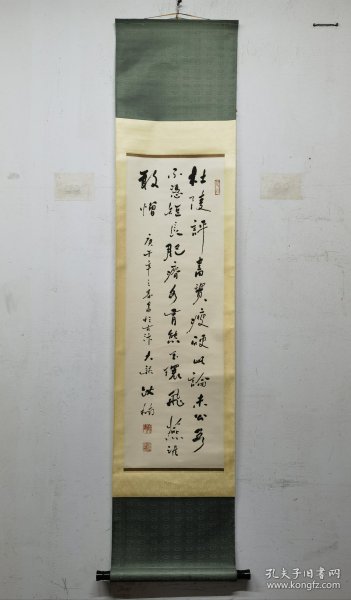 杜陵評書貴瘦硬此論未公吾
不憑短長肥瘠各有態玉環飛燕誰
敢憎
庚午年之春書於
孔夫子旧书网